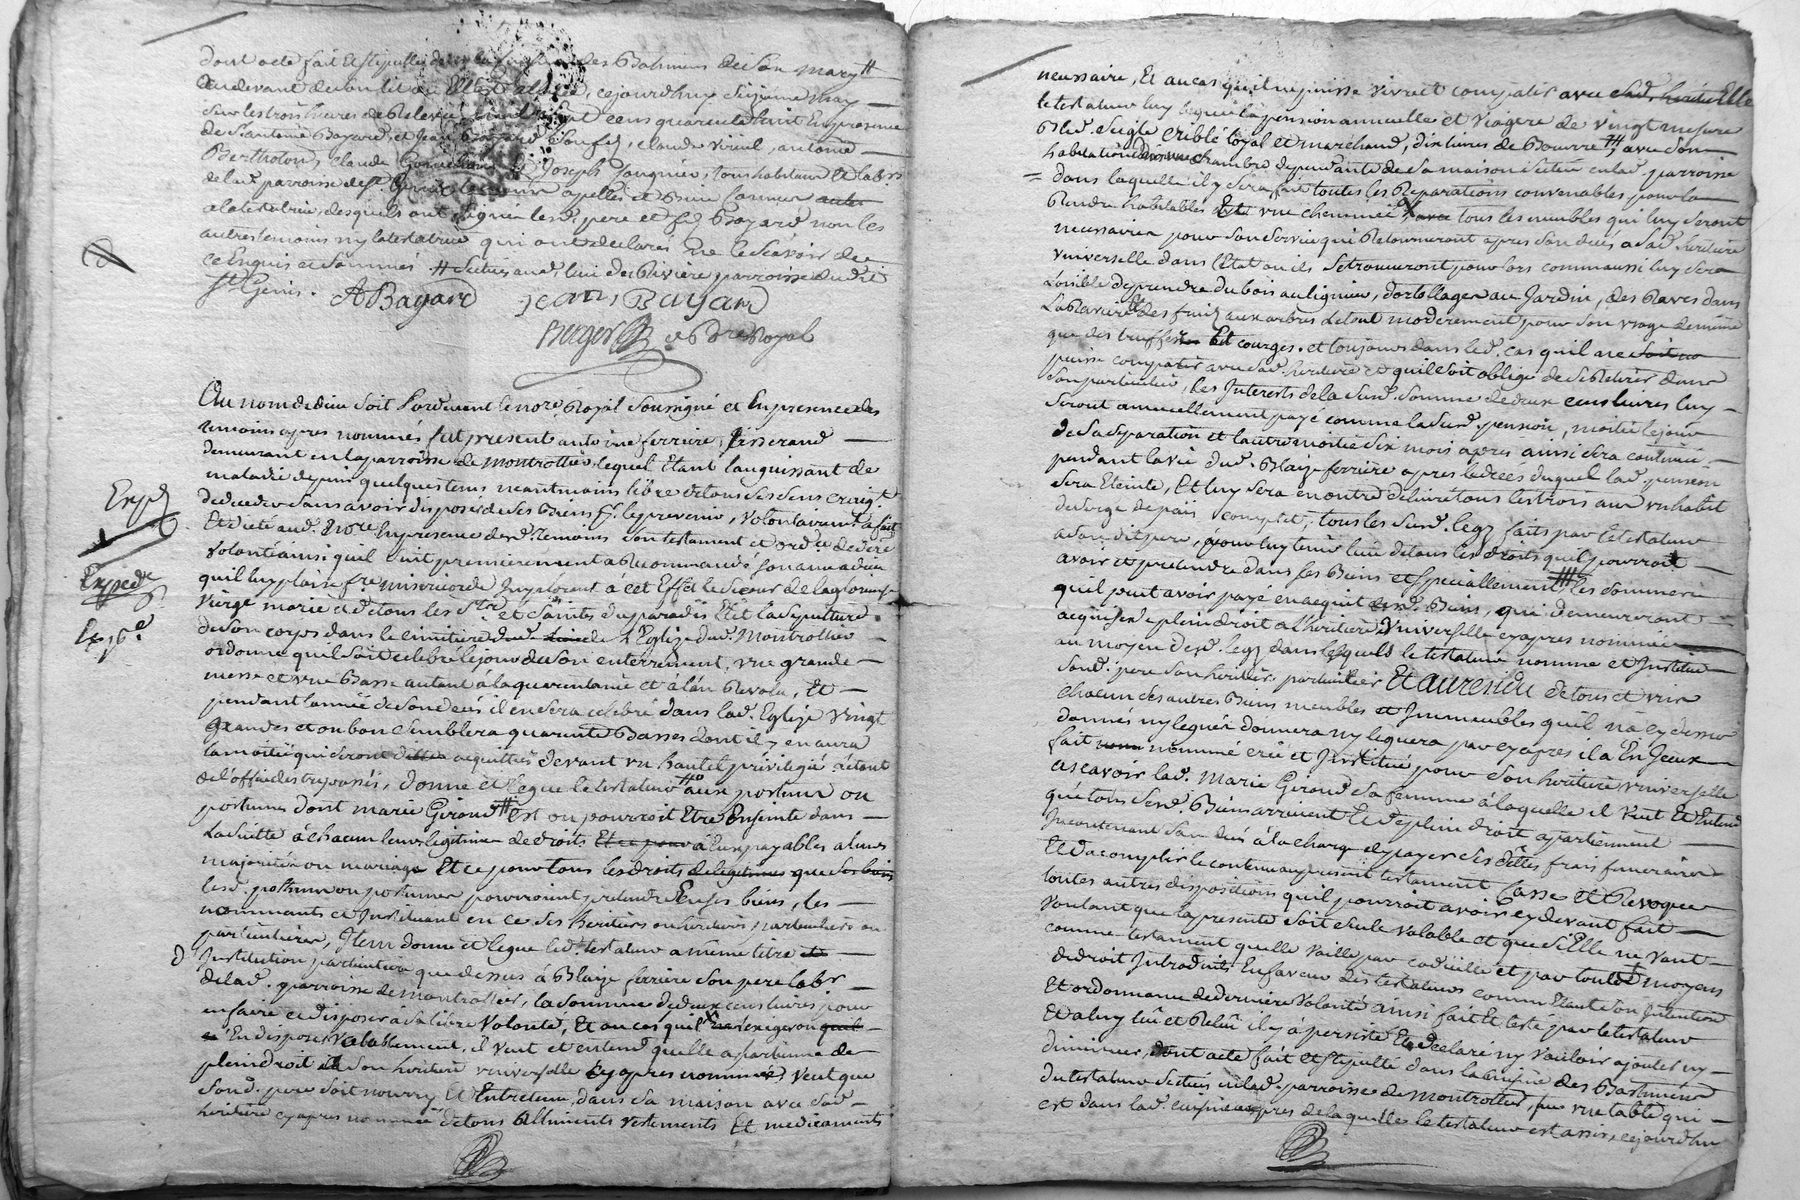 dont acte fait et stipullé dans la des Batimens de son mary #
au devant de son lit ou elle est , cejourdhuy sixieme may
sur les trois heures de Relevée cens quarente huit En presence
de S. antoine Bayard et Jean Bayard son fils, claude , antoine
Bertholon, claude Joseph , tous habitans Et labrs
de lad. parroisse de St apellés et
a la testatrice, desquels ont signé lesd. pere et fils Bayard non les
autres temoins ny la testatrice qui ont declarés ne le scavoir de
ce Enquis et sommés # scitués aud. lieu de Riviere parroisse dudit
St Genis. ABayard Jean Bayard
Berger Nre Royal
Au nom de dieu soit Pardevant le nore Royal soussigné et En presence des
temoins apres nommés fut present antoine ferriere, tisserand
demeurant en la parroisse de montrottier, lequel Etant languissant de
maladie depuis quelques tems neantmoins libre de tous ses sens craigt
de deceder sans avoir disposé de ses Biens pr. le prevenir, volontairemt a fait
Et dicté aud. Nore En presence desd. temoins son testament et ordce de dere
volonté ainsi quil suit premierement a Recommandé son ame a dieu
quil luy plaise fre misericorde Implorant à cet Effet le secour de la glorieuse
vierge marie et de tous les Sts et Saintes du paradis Elit la sepulture
de son corps dans le cimitiere de l'Eglise dud. Montrottier
ordonne quil soit celebré le jour de son enterrement, vne grande
messe et vne Basse autant à la quarentaine et à l'an Revolu, Et
pendant l'année de son deces il en sera celebré dans lad. Eglise vingt
grandes et ou bon semblera quarente Basses dont il y en aura
la moitié qui seront dittes acquittées devant vn hautel privilegié etant
de l'office des trepassés, donne et legue le testateur # aux postume ou
postumes dont marie Giroud # est ou pourroit Etre Enseinte dans
la suitte à chacun leurs legitimes de droits Et ce pour à Eux payables à leurs
majorités ou mariage Et ce pour tous les droits de legitimes que ses biens
lesd. postume ou postumes pourroient pretendre En ses biens, les
nommants et Instituant en ce ses heritiers ou heritieres particuliers ou
particulieres, Item donne et legue led. testateur a même titre et
d Institution particuliere que dessus à Blaize ferriere son pere labr
de lad. parroisse de montrottier, la somme de deux cens livres pour
en faire et disposer à sa libre volonté, Et au cas quil
En disposer valablement, il veut et entend quelle apartienne de
plein droit à son heritiere vniverselle cy apres nommée, veut que
sond. pere soit nourry Et Entretenu, dans sa maison avec sad.
heritiere cy apres nommée de tous Alliments vestements Et medicaments
Expd
Expede
Expe
necessaire, Et au cas quil ne puisse vivre et compatir avec sad. heritiere Elle
le testateur luy legue la pension annuelle et viagere de vingt mesure
Bled seigle criblé loyal et marchand, dix livres de Beurre # avec son
habitation dans vne chambre dependante de sa maison scituée en lad. parroisse
= dans laquelle il y sera fait toutes les Reparations convenables pour la
Rendre habitables Et vne cheminée avec tous les meubles qui luy seront
necessaires pour son service qui Retourneront apres son deces a sad. heritiere
vniverselle dans l'Etat ou ils se trouveront pour lors comm'aussi luy sera
loisible de prendre du bois au lignier, d'ortollages au Jardin, des Raves dans
la Raviere des fruits aux arbres le tout moderement pour son vsage de même
que des truffes Et courges, et toujours dans led. cas quil ne
puisse compatir avec sad. heritiere et quil soit obligé de se Retirer dans
son particulier, les Interests de la susd. somme de deux cens livres luy
seront annuellement payé comme la susd. pension, moitié le jour
de sa separation et lautre moitié six mois apres ainsi sera continué
pendant la vie dud. Blaize ferriere apres le deces duquel lad. pension
sera Eteinte, Et luy sera en outre delivré tous les trois ans vn habit
de serge de pais complet; tous les susd. legs faits par le testateur
a son dit pere, pour luy tenir lieu de tous les droits quil pourroit
avoir et pretendre dans ses Biens et speciallement # les sommes
quil peut avoir payé en acquit desd. Biens, qui demeureront
acquises de plein droit a l'heritiere vniverselle cy apres nommée
au moyen desd. legs dans lesquels le testateur nomme et Institue
sond. pere son heritier particulier Et au residu de tous et vns
chacun ses autres Biens meubles et Immeubles quil na cy dessus
donnés ny legués donnera ny leguera par cy apres il a En Iceux
fait nommé créé et Institué pour son heritiere vniverselle
ascavoir lad. Marie Giroud sa femme à laquelle il veut Et Entend
que tous sesd. Biens arrivent Et de plein droit apartiennent
Incontinent son deces à la charge de payer ses dettes frais funeraires
Et d'acomplir le contenu au present testament Casse Et Revoque
toutes autres dispositions quil pourroit avoir cy devant fait
voulant que la presente soit seule valable et que si Elle ne vaut
comme testament quelle vaille par codicille et par tous moyens
de droit Introduits En faveur des testateurs comm'Etant son Intention
Et ordonnance de derniere volonté ainsi fait Et testé par le testateur
Et a luy lû et Relû il y à persisté Et declaré ny vouloir ajouter ny
diminuer, dont acte fait et stipullé dans la cuisine des Bastiments
du testateur scitués en lad. parroisse de montrottier, sur vne table qui
est dans lad. cuisine aupres de laquelle le testateur est assis, cejourdhuy